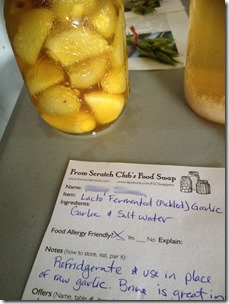 From Scratch Club's Food Swap
Name:
Item: Lacto Fermented (Pickled) Garlic
Ingredients:
Garlic & Salt water
Food Allergy Friendly? X Yes No Explain:
Notes (how to store, eat, pair it):
Refridgerate & use in place
of raw garlic. Brine is great in
Offers (Name, table #,